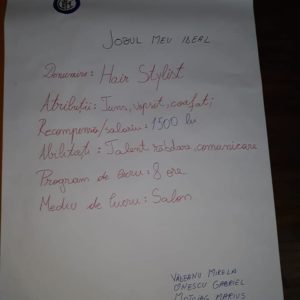 JOBUL MEU IDEAL
Denumire: Hair Stylist
Atribuții: Tuns, vopsit, coafat;
Recompensă/salariu: 1500 lei
Abilități: Talent răbdare, comunicare
Program de lucru: 8 ore
Mediu de lucru: Salon
VALEANU MIRELA
IONESCU GABRIEL
MARIUS